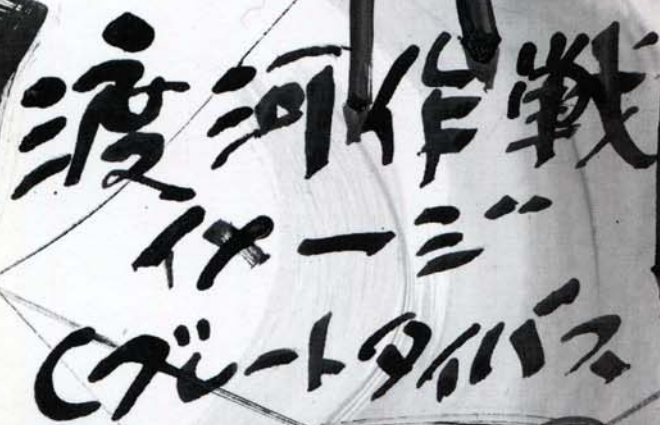 渡河作戦
イメージ
Cブレートタイバス